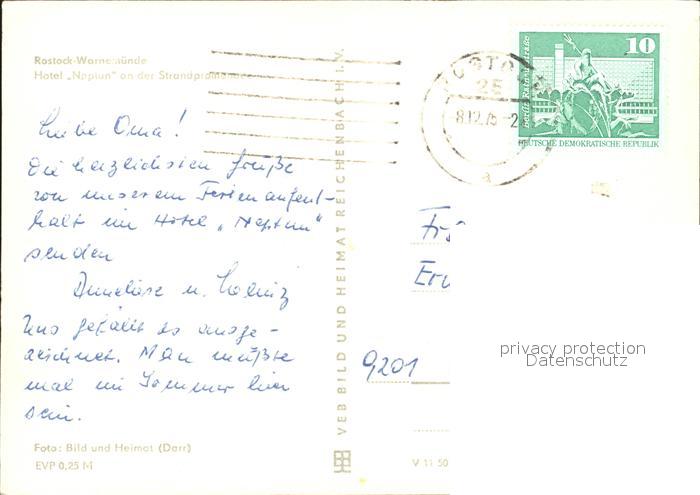 Rostock-Warnemünde
Hotel „Neptun" an der Strandpromenade
Liebe Oma!
Die herzlichsten Grüße
von unserem Ferienaufent-
halt im Hotel „Neptun"
senden
Anneliese u.
Uns gefällt es ausge-
zeichnet. Man müßte
mal im Sommer hier
sein.
Foto: Bild und Heimat (Darr)
EVP 0,25 M
VEB BILD UND HEIMAT REICHENBACH I. V.
ROSTOCK
25
8.12.75-2
a
10
Berlin, Rathausstraße
DEUTSCHE DEMOKRATISCHE REPUBLIK
9201
V 11 50
privacy protection
Datenschutz